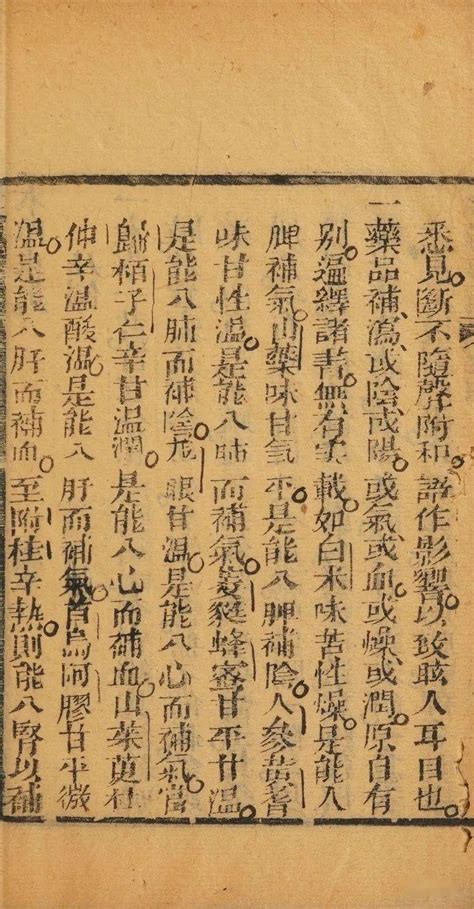 悉見斷不隨聲附和語作影響以致眩人耳目也
一藥品補瀉或陰或陽或氣或血或燥或潤原自有
別遍繹諸書無有實載如白朮味苦性燥是能入
脾補氣山藥味甘氣平是能入脾補陰人參黃耆
味甘性溫是能入肺而補氣葳蕤蜂蜜甘平甘溫
是能入肺而補陰龙眼甘溫是能入心而補氣當
歸栢子仁辛甘溫潤是能入心而補血山茱萸杜
仲辛溫酸溫是能入肝而補氣首烏阿膠甘平微
溫是能入肝而補血至附桂辛熱則能入腎以補